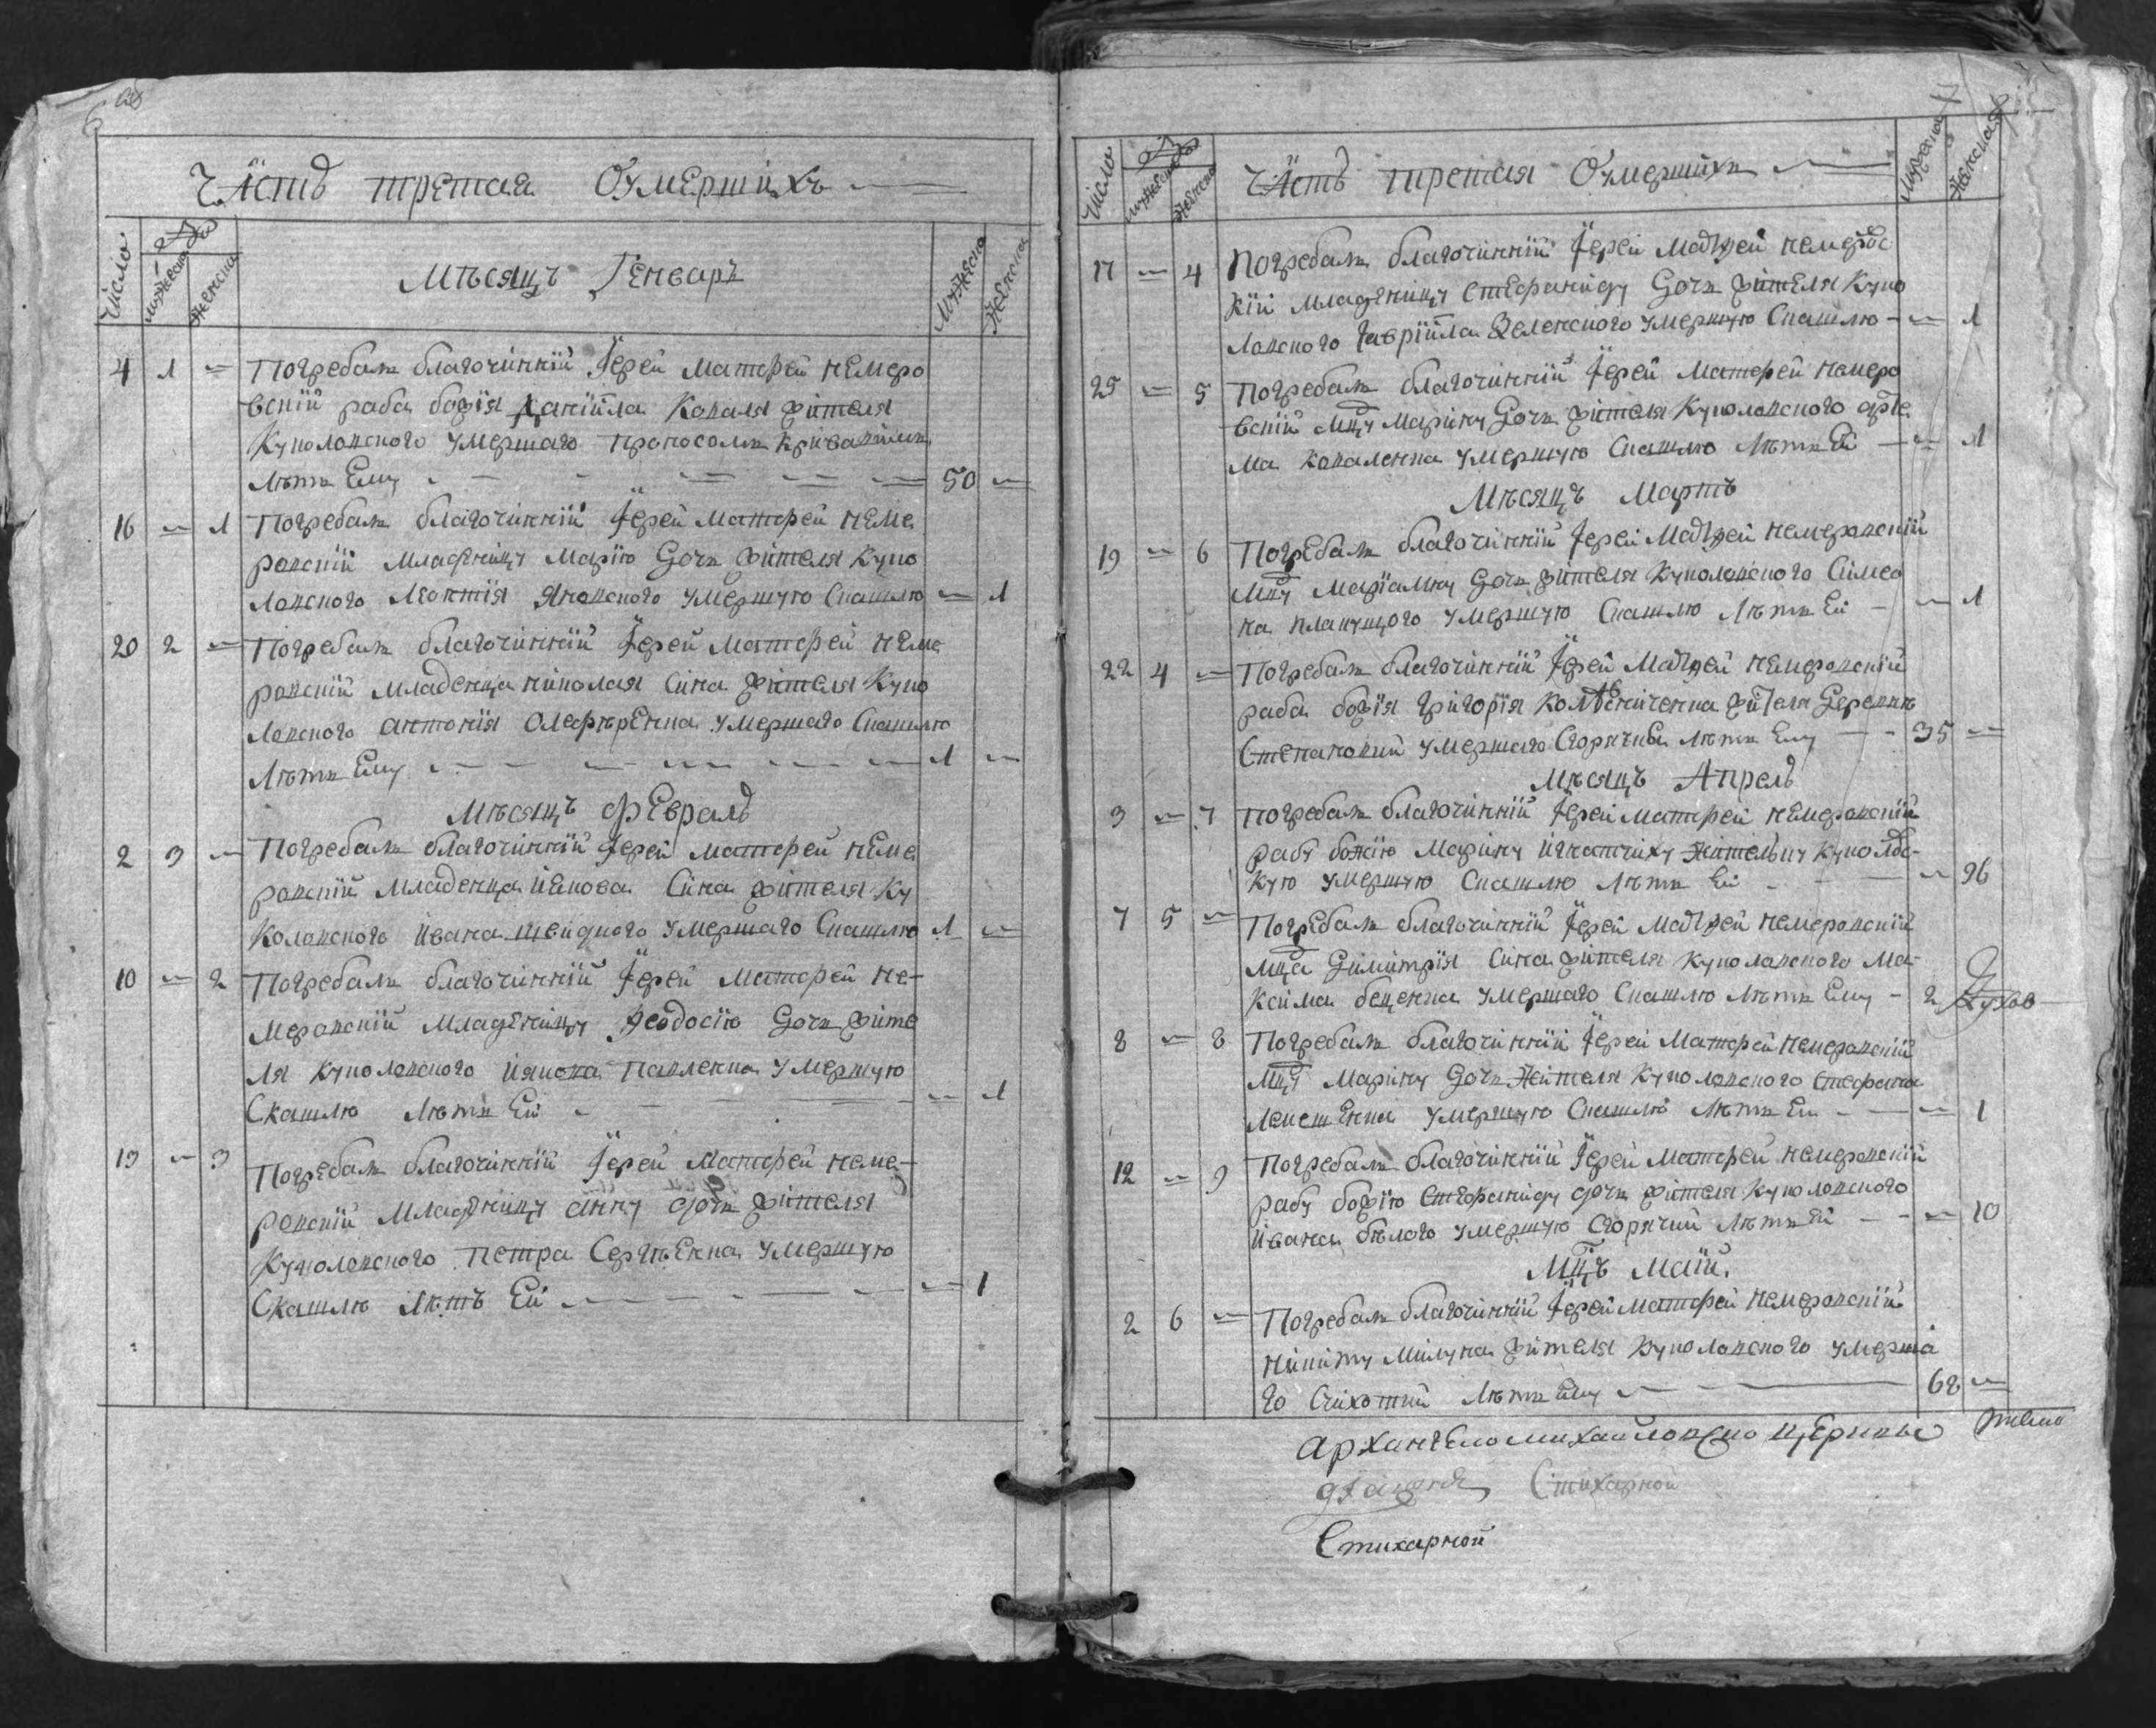 Часть третая Оумершихъ
Число
мужеска
женска
Мѣсяцъ Генваръ
мужеска
женска
4 1 Погребалъ благочинній Іерей Матфей Немеро
вскій раба божія Даніила Коваля жителя
Куколовского умершаго
лѣтъ Ему 50
16 1 Погребалъ благочинній Іерей Матфей Неме
ровскій младеницу Марію дочь жителя Куко
ловского Леонтія Яковского умершую Скашлю 1
20 2 Погребалъ благочинній Іерей Матфей Неме
ровскій младенца Николая Сина жителя Куко
ловского Антонія Олефѣренка умершаго Скашлю
лѣтъ Ему 1
Мѣсяцъ Февралъ
2 3 Погребалъ благочинній Іерей Матфей Неме
ровскій младенца Иякова Сина жителя Ку
коловского Ивана умершаго Скашлю 1
10 2 Погребалъ благочинній Іерей Матфей Не-
меровскій младеницу Феодосію дочь жите
ля Куколовского Иякова Павленка умершую
Скашлю лѣтъ Ей 1
13 3 Погребалъ благочинній Іерей Матфей Неме-
ровскій младеницу Анну дочь жителя
Куколовского Петра Сергѣенка умершую
Скашлю лѣтъ Ей 1
Число
мужеска
женска
Часть третая Оумершихъ
мужеска
женска
17 4 Погребалъ благочинній Іерей Матѳей Немеровс
кій младеницу Стефаниду дочь жителя Куко
ловского Гавріила Зеленского умершую Скашлю 1
25 5 Погребалъ благочинній Іерей Матфей Немеро
вскій Мцу Марину дочь жителя Куколовского Арте
ма Коваленка умершую Скашлю лѣтъ Ей 1
Мѣсяцъ Мартъ
19 6 Погребалъ благочинній Іерей Матѳей Немеровскій
Мцу Маріамну дочь жителя Куколовского Симео
на Плакущого умершую Скашлю лѣтъ Ей 1
22 4 Погребалъ благочинній Іерей Матѳей Немеровскій
раба божія Григорія жителя Деревнѣ
Степановки умершаго Сгорячки лѣтъ Ему 35
Мѣсяцъ Апрель
3 7 Погребалъ благочинній Іерей Матфей Немеровскій
рабу божію Марину Игнатчиху жителку Куколовс-
кую умершую Скашлю лѣтъ Ей 96
7 5 Погребалъ благочинній Іерей Матѳей Немеровскій
Мца Димитрія Сина жителя Куколовского Ма-
ксима Беценка умершаго Скашлю лѣтъ Ему 2
8 8 Погребалъ благочинній Іерей Матфей Немеровскій
Мцу Марину дочь жителя Куколовского Стефана
Лемешенка умершую Скашлю лѣтъ Ей 1
12 9 Погребалъ благочинній Іерей Матфей Немеровскій
рабу божію Стефаниду дочь жителя Куколовского
Ивана Бѣлого умершую Сгорячки лѣтъ Ей 10
Мцъ Маій
2 6 Погребалъ благочинній Іерей Матфей Немеровскій
Никиту Милука жителя Куколовского умерша
го Сухотки лѣтъ Ему 68
Архангеломихайловско церкви
Стихарной
Стихарной